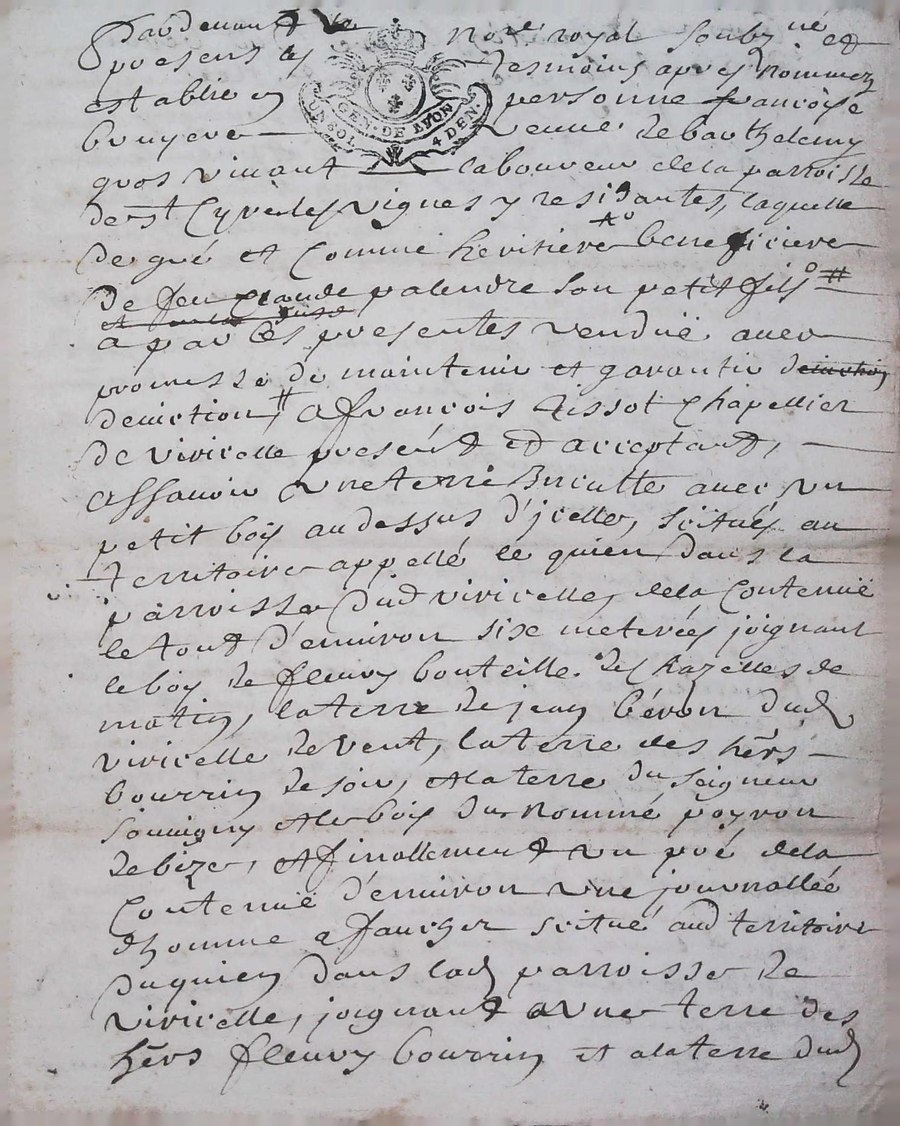 Pardevant Le No.re royal soubz.né et
presens les tesmoins apres nommez
establie en personne francoise
bruyere veuve de barthelemy
GEN. DE LYON
UN SOL 4 DEN.
gros vivant laboureur de la parroisse
de st Cyr les vignes y residantes, laquelle
de gré et Comme heritiere beneficiere
De feu Claude palendre son petit fils #
a par Ces presentes vendüe avec
promesse de maintenir et garantir
deviction # a françois tissot Chapellier
De viricelle present et acceptant,
assavoir une terre Inculte avec un
petit bois au dessus d'jcelle, scitués au
territoire appellé le quien dans la
parroisse dud viricelle, de la Contenüe
le tout d'environ sixe meterées joignant
le bois de fleury bouteille de Chazelles de
matin, la terre de jean béron dud
viricelle de vent, la terre des hers
bourrin de soir, et la terre du seigneur
souvigny et le bois du nommé poyron
de bize, et finallement un pré de la
Contenüe d'environ une journallée
dhomme a faucher scitué aud territoire
du quien dans lad parroisse de
viricelle, joignant a une terre des
hers fleury bourrin et a la terre dud